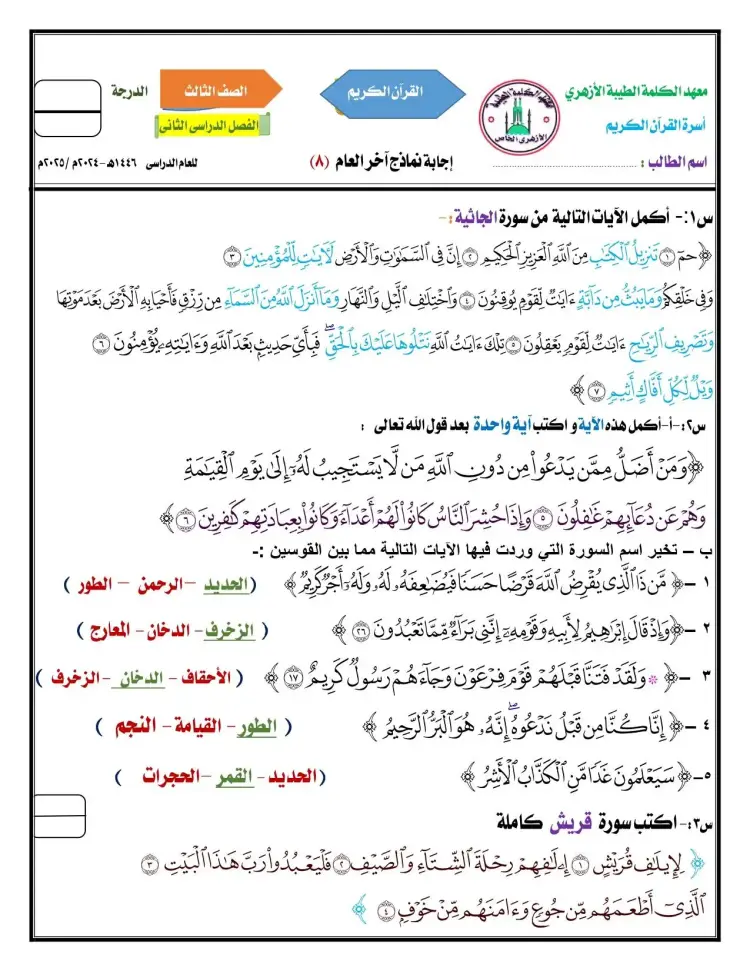 معهد الكلمة الطيبة الأزهري
أسرة القرآن الكريم
اسم الطالب : ........................................
معهد الكلمة الطيبة
الأزهري الخاص
القرآن الكريم
إجابة نماذج آخر العام (٨)
الصف الثالث
الفصل الدراسى الثانى
للعام الدراسى ١٤٤٦هـ -٢٠٢٤م /٢٠٢٥م
الدرجة
س١:- أكمل الآيات التالية من سورة الجاثية :-
﴿ حمٓ ۝١ تَنزِيلُ ٱلْكِتَٰبِ مِنَ ٱللَّهِ ٱلْعَزِيزِ ٱلْحَكِيمِ ۝٢ إِنَّ فِى ٱلسَّمَٰوَٰتِ وَٱلْأَرْضِ لَءَايَٰتٍ لِّلْمُؤْمِنِينَ ۝٣
وَفِى خَلْقِكُمْ وَمَا يَبُثُّ مِن دَآبَّةٍ ءَايَٰتٌ لِّقَوْمٍ يُوقِنُونَ ۝٤ وَٱخْتِلَٰفِ ٱلَّيْلِ وَٱلنَّهَارِ وَمَآ أَنزَلَ ٱللَّهُ مِنَ ٱلسَّمَآءِ مِن رِّزْقٍ فَأَحْيَا بِهِ ٱلْأَرْضَ بَعْدَ مَوْتِهَا
وَتَصْرِيفِ ٱلرِّيَٰحِ ءَايَٰتٌ لِّقَوْمٍ يَعْقِلُونَ ۝٥ تِلْكَ ءَايَٰتُ ٱللَّهِ نَتْلُوهَا عَلَيْكَ بِٱلْحَقِّ ۖ فَبِأَىِّ حَدِيثٍۭ بَعْدَ ٱللَّهِ وَءَايَٰتِهِۦ يُؤْمِنُونَ ۝٦
وَيْلٌ لِّكُلِّ أَفَّاكٍ أَثِيمٍ ۝٧ ﴾
س٢:-أ-أكمل هذه الآية و اكتب آية واحدة بعد قول الله تعالى :
﴿ وَمَنْ أَضَلُّ مِمَّن يَدْعُوا۟ مِن دُونِ ٱللَّهِ مَن لَّا يَسْتَجِيبُ لَهُۥٓ إِلَىٰ يَوْمِ ٱلْقِيَٰمَةِ
وَهُمْ عَن دُعَآئِهِمْ غَٰفِلُونَ ۝٥ وَإِذَا حُشِرَ ٱلنَّاسُ كَانُوا۟ لَهُمْ أَعْدَآءً وَكَانُوا۟ بِعِبَادَتِهِمْ كَٰفِرِينَ ۝٦ ﴾
ب – تخير اسم السورة التي وردت فيها الآيات التالية مما بين القوسين :-
١ –﴿ مَّن ذَا ٱلَّذِى يُقْرِضُ ٱللَّهَ قَرْضًا حَسَنًا فَيُضَٰعِفَهُۥ لَهُۥ وَلَهُۥٓ أَجْرٌ كَرِيمٌ ﴾ (الحديد –الرحمن – الطور )
٢ –﴿ وَإِذْ قَالَ إِبْرَٰهِيمُ لِأَبِيهِ وَقَوْمِهِۦٓ إِنَّنِى بَرَآءٌ مِّمَّا تَعْبُدُونَ ۝٢٦ ﴾ ( الزخرف- الدخان – المعارج )
٣ –﴿ * وَلَقَدْ فَتَنَّا قَبْلَهُمْ قَوْمَ فِرْعَوْنَ وَجَآءَهُمْ رَسُولٌ كَرِيمٌ ۝١٧ ﴾ ( الأحقاف – الدخان –الزخرف )
٤ –﴿ إِنَّا كُنَّا مِن قَبْلُ نَدْعُوهُ ۖ إِنَّهُۥ هُوَ ٱلْبَرُّ ٱلرَّحِيمُ ﴾ ( الطور– القيامة – النجم )
٥-﴿ سَيَعْلَمُونَ غَدًا مَّنِ ٱلْكَذَّابُ ٱلْأَشِرُ ﴾ (الحديد – القمر –الحجرات )
س٣:- اكتب سورة قريش كاملة
﴿ لِإِيلَٰفِ قُرَيْشٍ ۝١ إِۦلَٰفِهِمْ رِحْلَةَ ٱلشِّتَآءِ وَٱلصَّيْفِ ۝٢ فَلْيَعْبُدُوا۟ رَبَّ هَٰذَا ٱلْبَيْتِ ۝٣
ٱلَّذِىٓ أَطْعَمَهُم مِّن جُوعٍ وَءَامَنَهُم مِّنْ خَوْفٍۭ ۝٤ ﴾